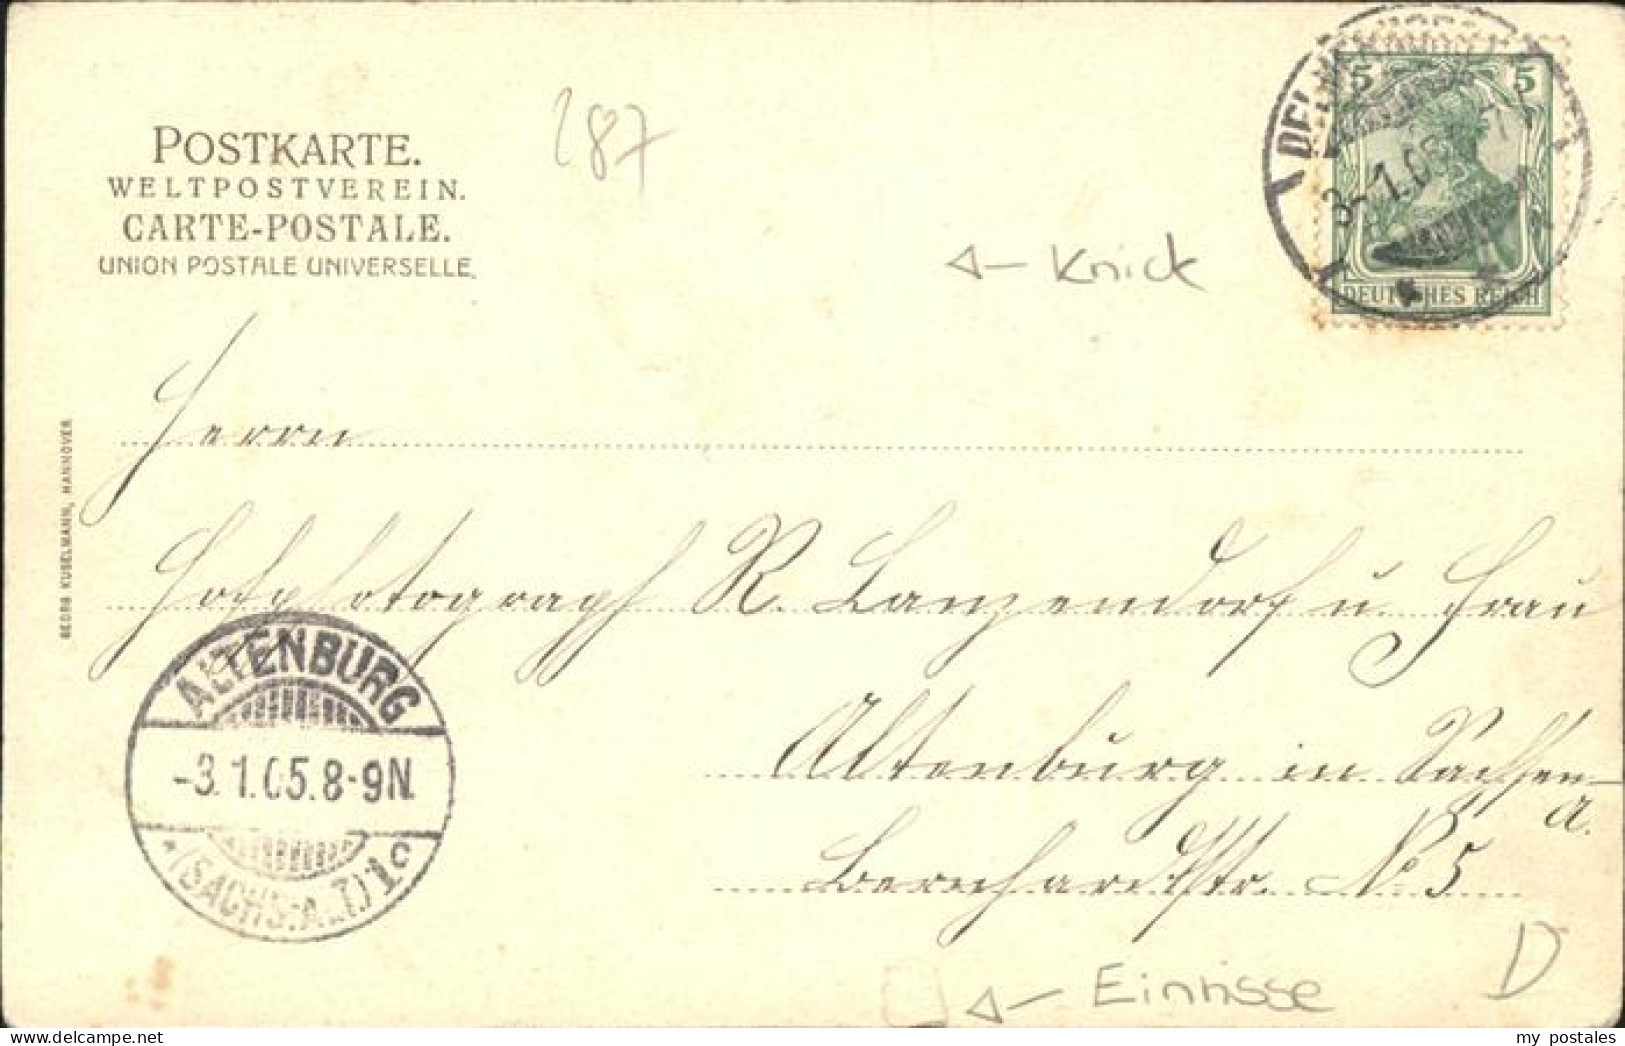 POSTKARTE.
WELTPOSTVEREIN.
CARTE-POSTALE.
UNION POSTALE UNIVERSELLE.
287
5 5
3.1.05
DEUTSCHES REICH
Knick
GEORG KUGELMANN, HANNOVER
Herrn
Hofphotograph R. Lanzendorf u. Frau
Altenburg in Sachsen-
A.
Bernhardtstr. No 5
ALTENBURG
-3.1.05.8-9N.
*(SACHS:-ALT.)1c
Einrisse
D
my postales